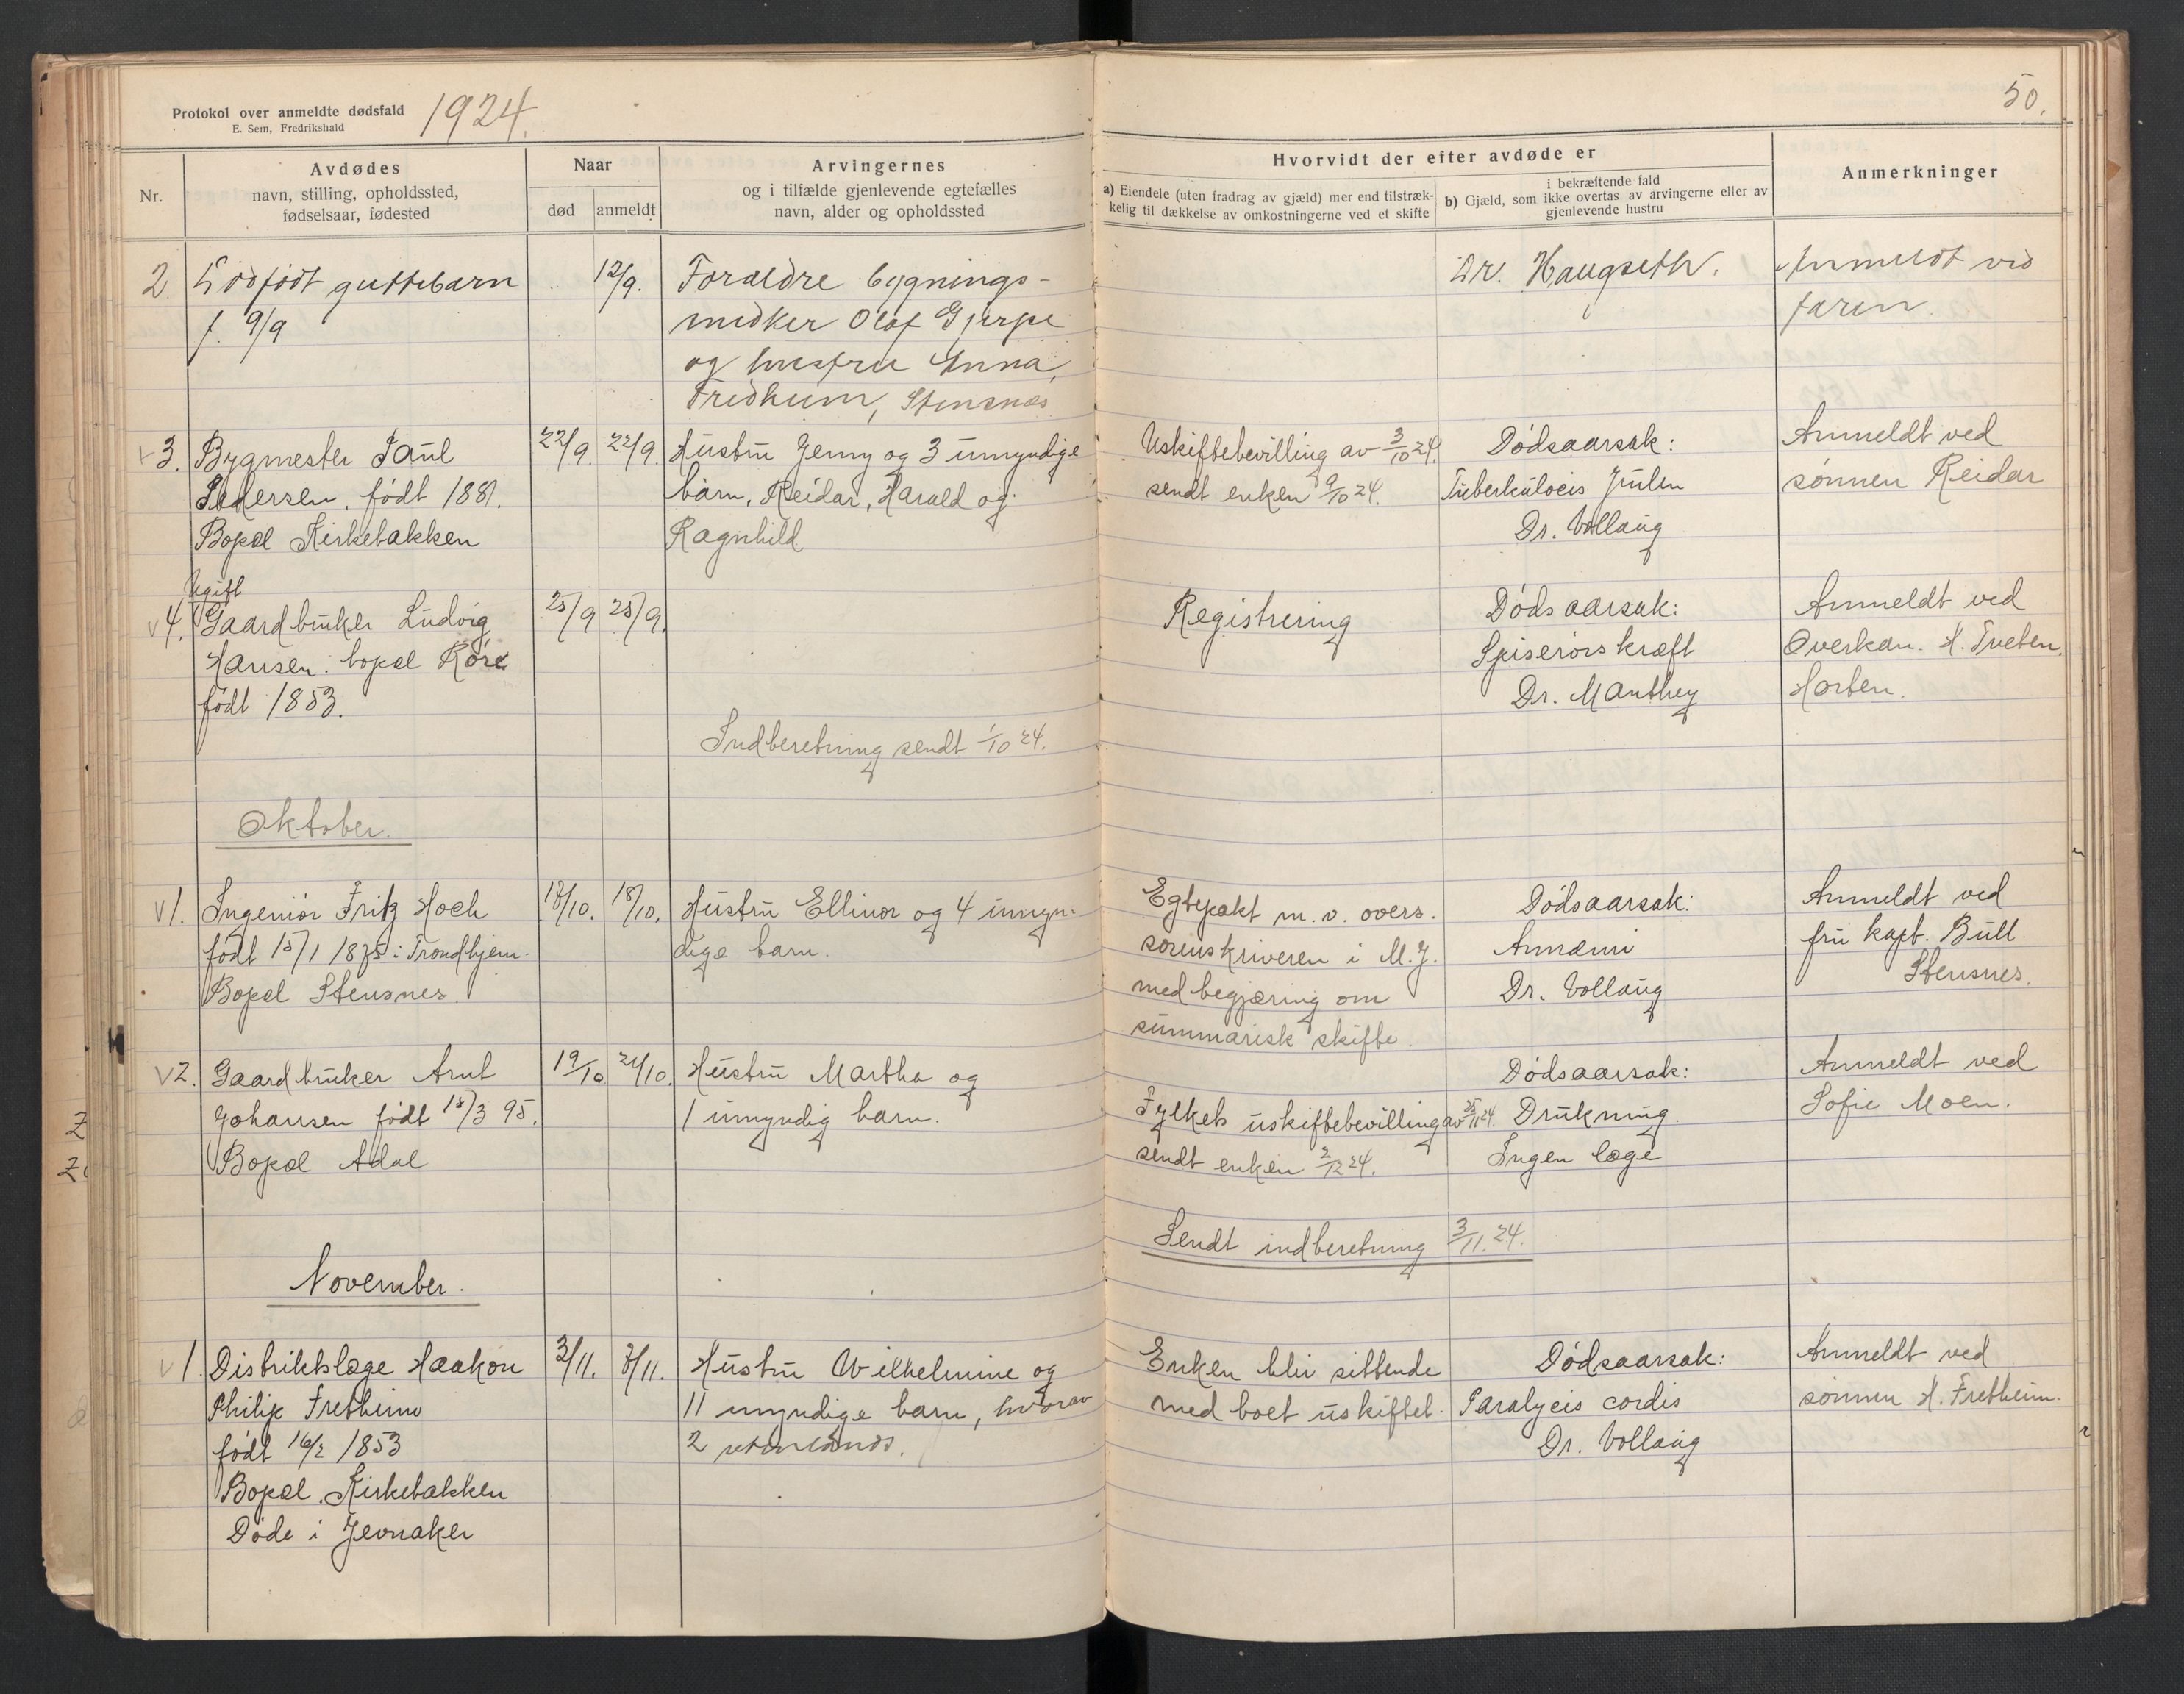 Protokol over anmeldte dødsfald
E. Sem, Fredrikshald
1924.
50.
Nr.
Avdødes
navn, stilling, opholdssted,
fødselsaar, fødested
Naar
død
anmeldt
Arvingernes
og i tilfælde gjenlevende egtefælles
navn, alder og opholdssted
Hvorvidt der efter avdøde er
a) Eiendele (uten fradrag av gjæld) mer end tilstræk-
kelig til dækkelse av omkostningerne ved et skifte
i bekræftende fald
b) Gjæld, som ikke overtas av arvingerne eller av
gjenlevende hustru
Anmerkninger
2. Dødfødt guttebarn
f. 9/9
12/9.
Foraldre bygnings-
snedker Olaf Gjerpe
og hustru Anna,
Fredheim, Stensnes
Dr. Haugseth.
Anmeldt ved
faren.
v 3. Bygmester Paul
Pedersen, født 1881.
Bopæl Kirkebakken
22/9. 22/9.
Hustru Jenny og 3 umyndige
barn, Reidar, Harald og
Ragnhild
Uskiftebevilling av 3/10 24.
sendt enken 9/10 24.
Dødsaarsak:
Tuberkulocis Pulm
Dr. Vollaug
Anmeldt ved
sønnen Reidar
Ugift
v 4. Gaardbruker Ludvig
Hansen. bopæl Røre
født 1853.
25/9 25/9.
Indberetning sendt 1/10 24.
Registrering
Dødsaarsak:
Spiserørskræft
Dr. Manthey
Anmeldt ved
Overkan. H. Tveten.
Horten.
Oktober.
v 1. Ingeniør Fritz Hoch
født 15/1 1875 i Trondhjem.
Bopæl Stensnes.
18/10.
Hustru Ellinor og 4 umyn-
dige barn.
Egtepakt m. v. overs.
sorenskriveren i M. J.
med begjæring om
summarisk skifte.
Dødsaarsak:
Annæmi
Dr. Vollaug
Anmeldt ved
fru kapt. Bull.
Stensnes.
v 2. Gaardbruker Arnt
Johansen født 15/3 95.
Bopæl Adal
19/10 21/10.
Hustru Martha og
1 umyndig barn.
Fylkets uskiftebevilling av 25/11 24.
sendt enken 2/12 24.
Dødsaarsak:
Drukning.
Ingen læge
Anmeldt ved
Sofie Moen.
Sendt indberetning 3/11. 24.
November.
v 1. Distriktslæge Haakon
Philip Fretheim
født 16/2 1853
Bopæl. Kirkebakken
Døde i Jevnaker
3/11. 3/11.
Hustru Wilhelmine og
11 umyndige barn, hvorav
2 utenlands.
Enken blir sittende
med boet uskiftet.
Dødsaarsak:
Paralycis cordis
Dr. Vollaug
Anmeldt ved
sønnen H. Fretheim.